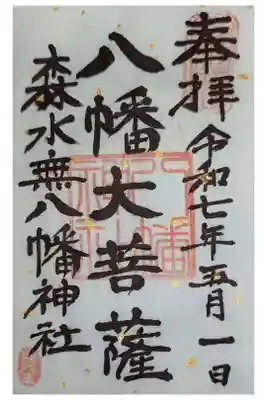 奉拝
令和七年五月一日
八幡大菩薩
森水無八幡神社